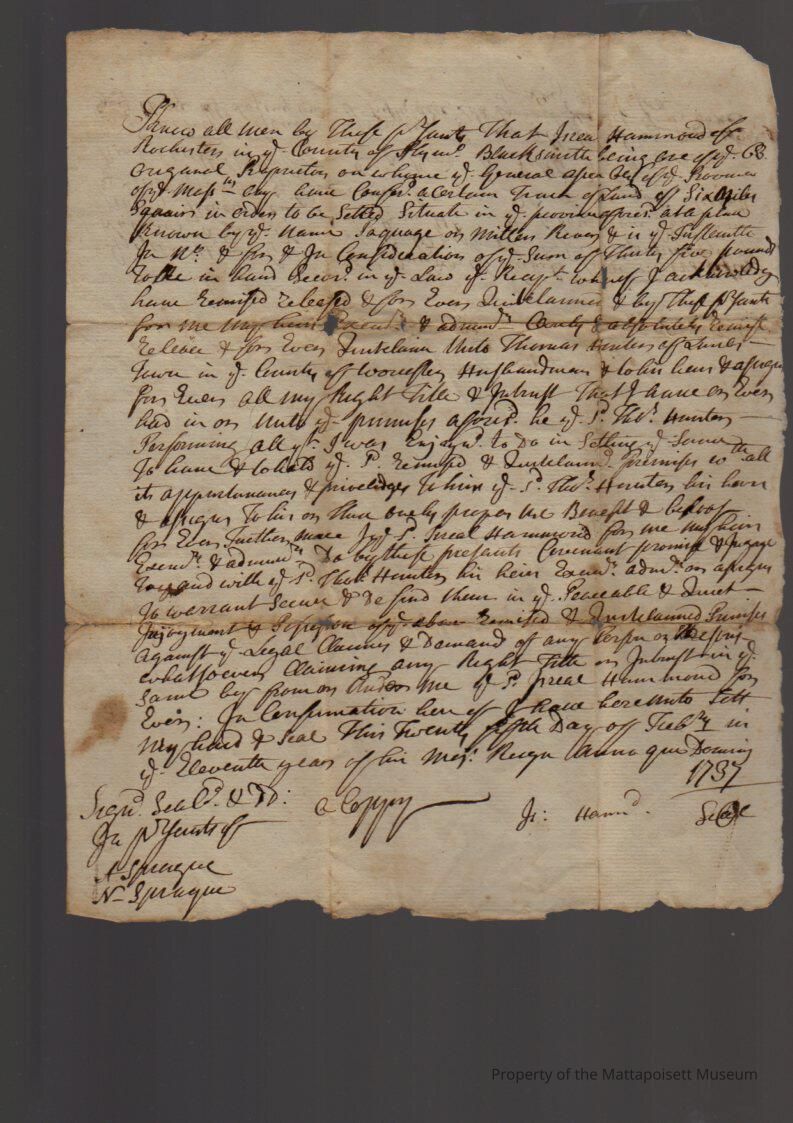 Know all men by These psents That Jsrea Hammond off
Rochester in ye County of Plymo. Blacksmith being one of ye 60
Origanal Propriators on whome ye General of ye Province
of ye Massts a Certain Tract of Land of Six Miles
Squair in order to be Setled Situate in ye province aforesd. at a place
Known by ye Name Paquage on Millers River & is ye
In No. & for & In Consideration of ye Sum of Thirty five pounds
To Me in hand Recevd. in ye Law ye Recept. whereof J acknowledg
have Remised Released & for Ever Quitclaimed & by These psents
for me my heirs Execurs & adminrs Clearly & absolutely Remise
Release & for Ever Quitclaim Unto Thomas Hunter off Lunen-
Town in ye County off Worcester Husbandman & to his heirs & assigns
for Ever all my Right Title & Intrust That J have or Ever
had in or Unto ye premises aforesd. he ye sd. Tho. Hunter
Performing all yt. I was Enjoynd. to Do in Setling ye Same
To have & to hold ye sd. Remised & Quitclaimd. Premises with all
its appurtenances & priveledges To him ye sd. Tho. Hunter his heirs
& assigns To his or Their only proper use Benefit & behoof
for Ever Further more J ye sd. Jsreal Hammond for me my heirs
Execurs. & adminrs Do by these presants Covenant promise & Ingage
To and with ye sd. Tho. Hunter his heirs Execurs. admrs. or assigns
To warrant Secure & De fend them in ye Peaceable & Quiet
Injoyment & Possession of ye above Remised & Quitclaimed Premises
Against ye Legal Claimes & Demand of any Person or Persons
whattsoever Claiming any Right Title or Intrust in ye
Same by from or Under me ye sd. Jsreal Hammond for
Ever: In Confirmation here of J have here Unto Sett
My hand & Seal This Twenty fifth Day off Febry in
ye Eleventh year of his Majs. Reign Annoque Domini
1737
Signd. Seald. & DD:
In psents of
a Coppy
Js: Hamnd.
Seal
A Sprague
N Sprague
Property of the Mattapoisett Museum